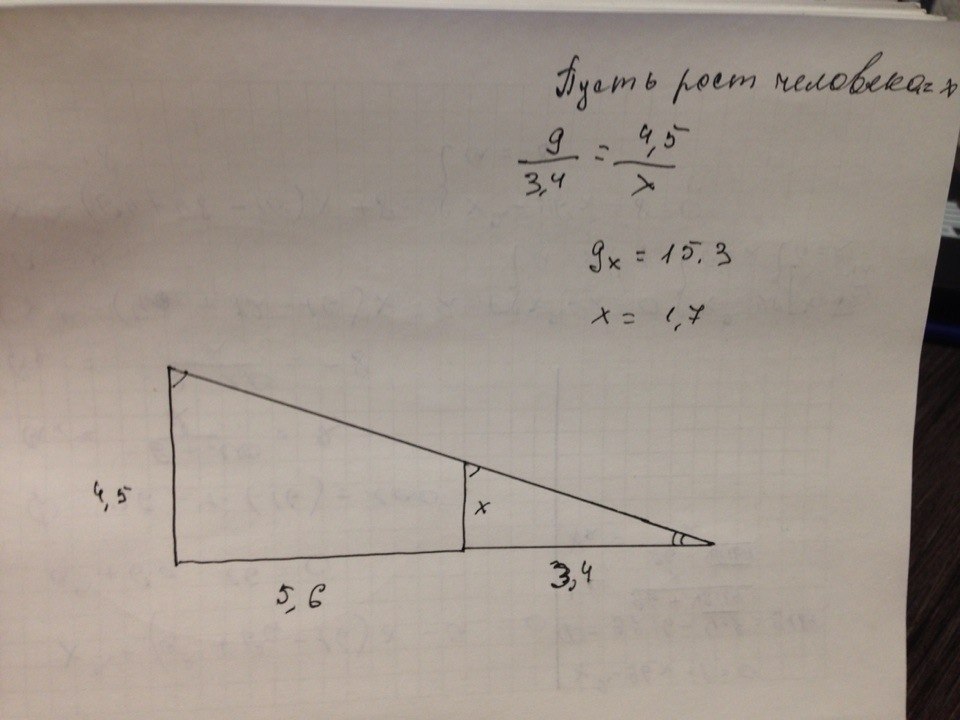 Пусть рост человека= x
9/3,4 = 4,5/x
9x = 15.3
x = 1,7
4,5
x
5,6
3,4